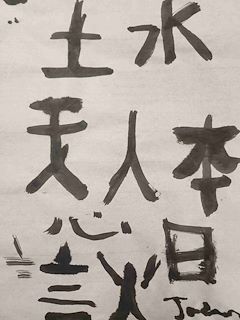 土 水
天 人 本
心 日
火
John